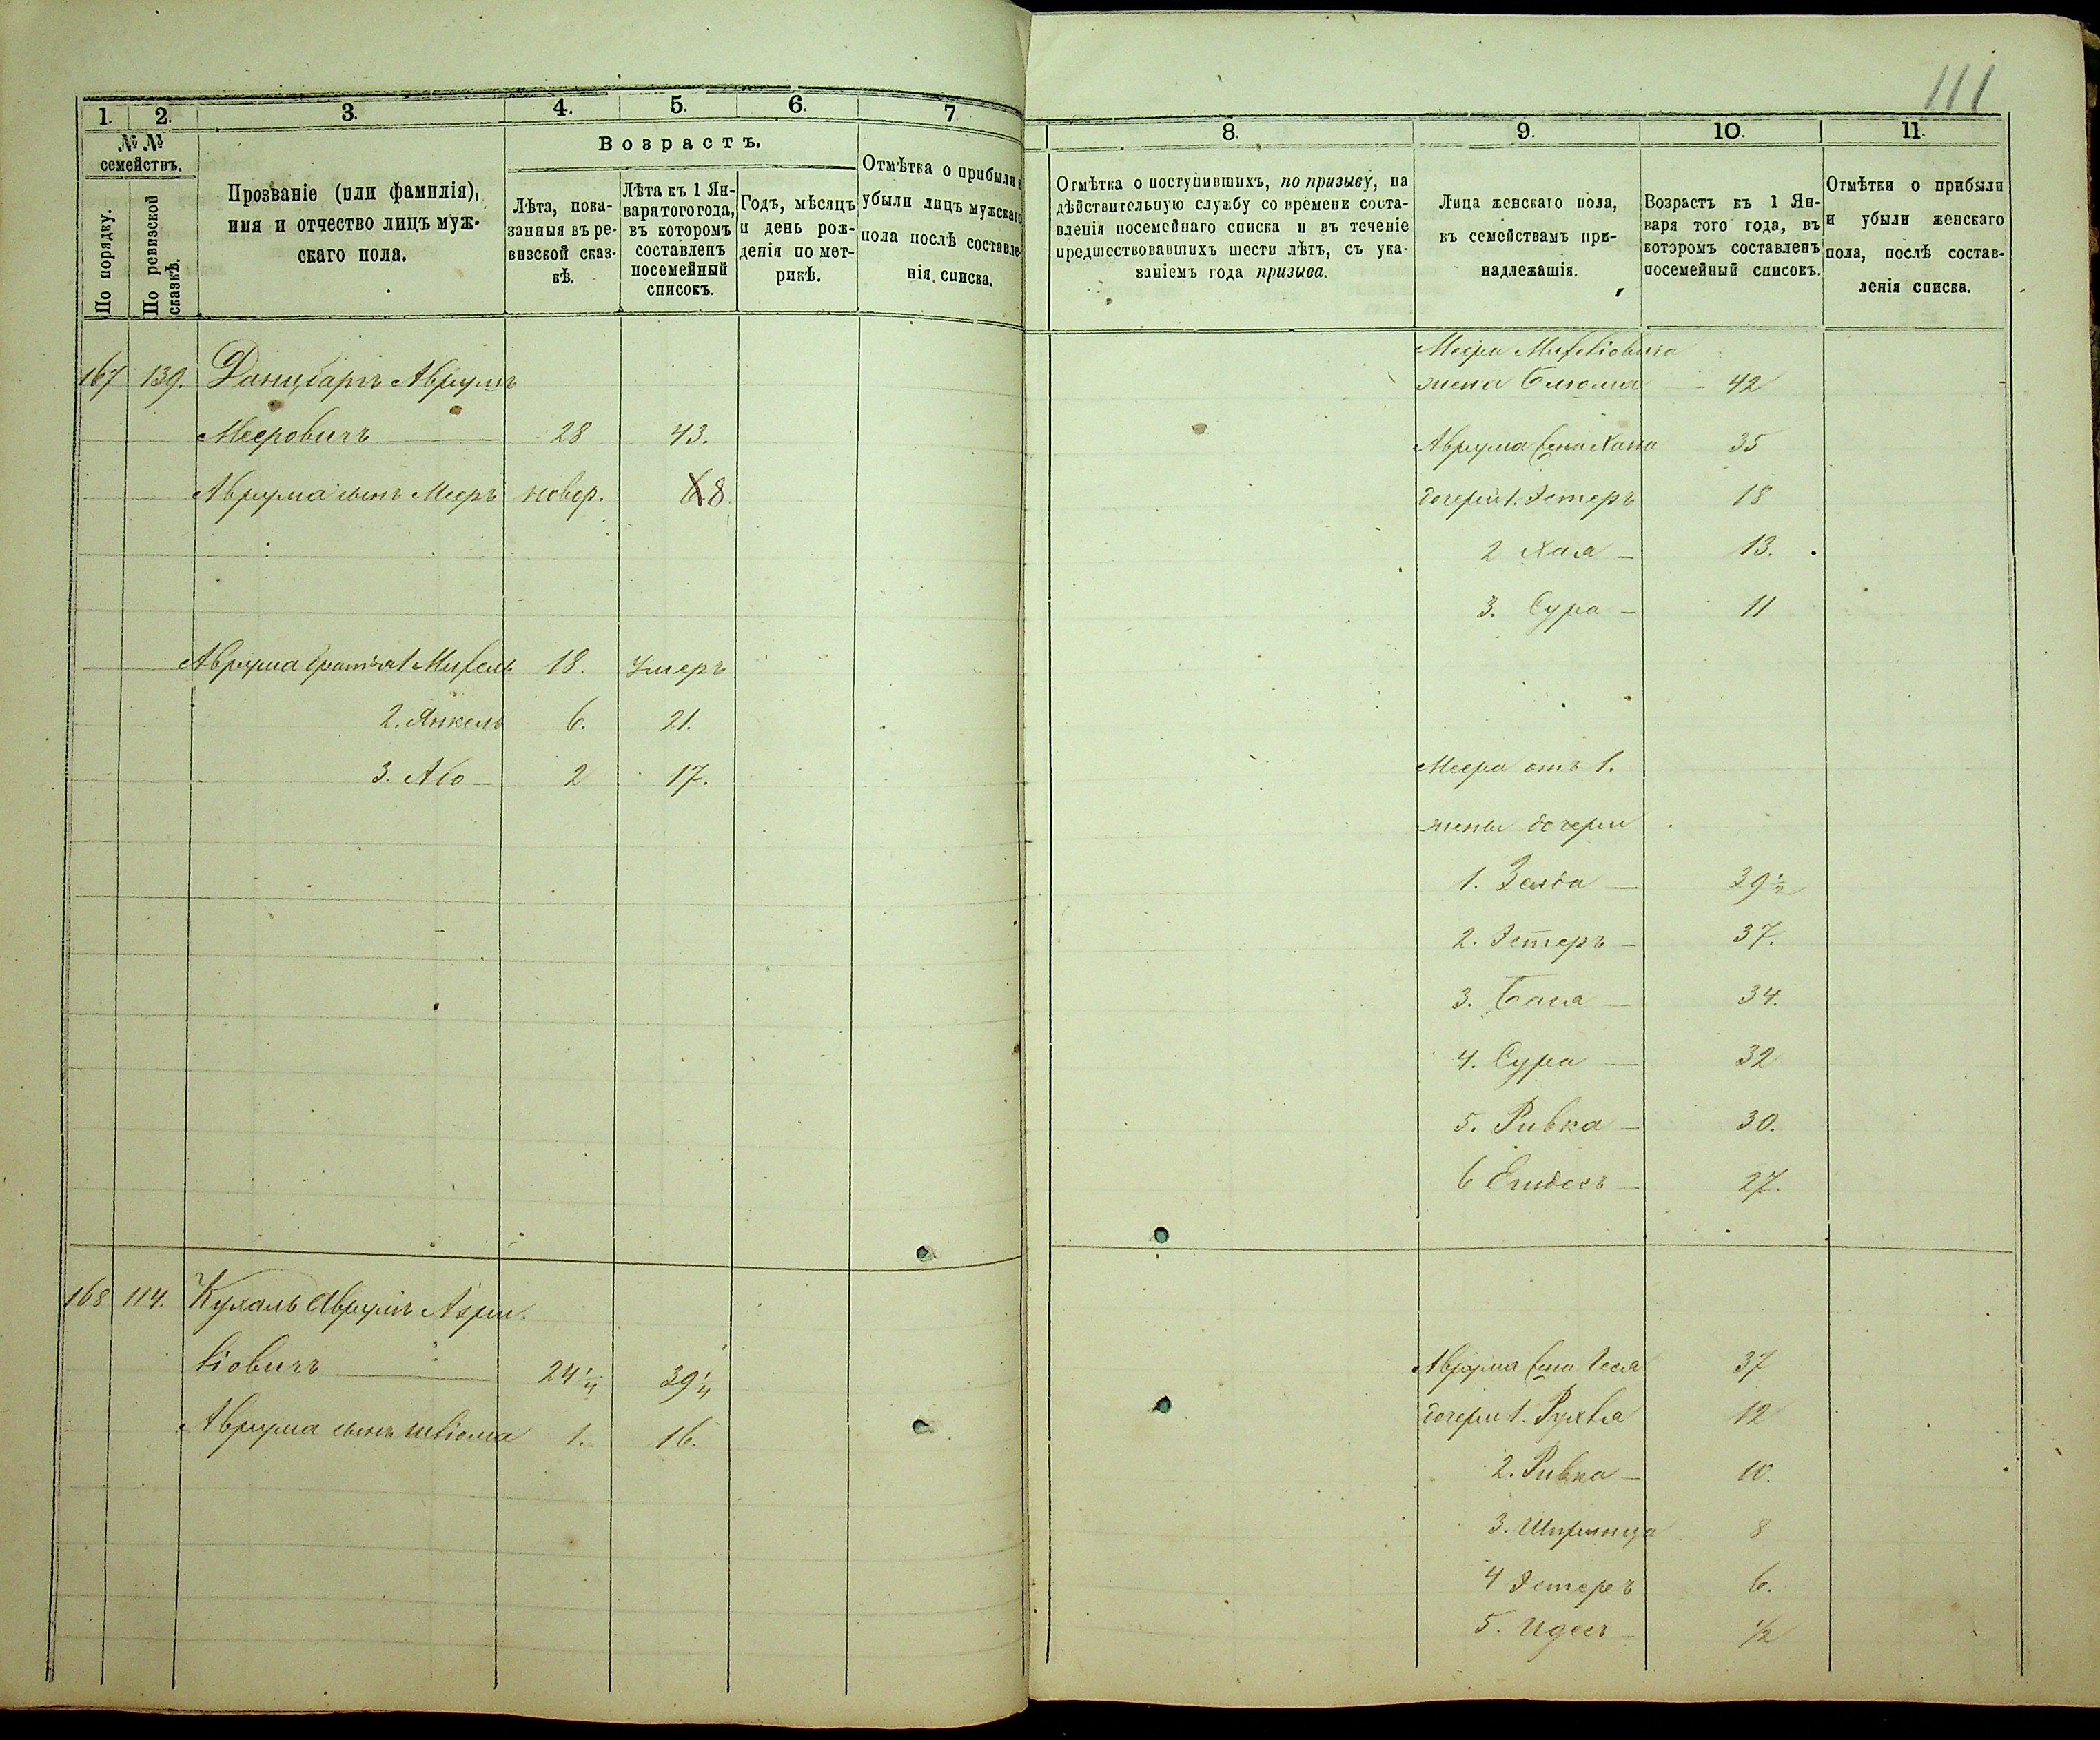 111
1. 2. 3. 4. 5. 6. 7
№ №
семействъ.
По порядку.
По ревизской сказкѣ.
Прозваніе (или фамилія),
имя и отчество лицъ муж-
скаго пола.
Возрастъ.
Лѣта, пока-
занныя въ ре-
визской сказ-
кѣ.
Лѣта къ 1 Ян-
варя того года,
въ которомъ
составленъ
посемейный
списокъ.
Годъ, мѣсяцъ
и день рож-
денія по мет-
рикѣ.
Отмѣтка о прибыли и
убыли лицъ мужскаго
пола послѣ составле-
нія списка.
167 139. Данцбаргъ Аврумъ
Мееровичъ 28 43.
Аврума сынъ Мееръ новор. 8.
Аврума братья 1 Михель 18. умеръ
2. Янкель 6. 21.
3. Або 2 17.
168 114. Кухаль Аврумъ Азри-
ліовичъ 24 1/4 39 1/4
Аврума сынъ 1. 16.
8. 9. 10. 11.
Отмѣтка о поступившихъ, по призыву, на
дѣйствительную службу со времени соста-
вленія посемейнаго списка и въ теченіе
предшествовавшихъ шести лѣтъ, съ ука-
заніемъ года призыва.
Лица женскаго пола,
къ семействамъ при-
надлежащія.
Возрастъ къ 1 Ян-
варя того года, въ
которомъ составленъ
посемейный списокъ.
Отмѣтки о прибыли
и убыли женскаго
пола, послѣ состав-
ленія списка.
Меера
жена Блюма 42
Аврума жена Хана 35
дочери 1. Эстеръ 18
2 Хая 13.
3. Сура 11
Меера отъ 1.
жены дочери
1. Зельда 39 1/2
2. Эстеръ 37.
3. Бася 34.
4. Сура 32
5. Ривка 30.
6 27.
Аврума жена 37
дочери 1. Рухля 12
2. Ривка 10.
3. 8
4 Эстеръ 6.
5. Идесъ 1/2